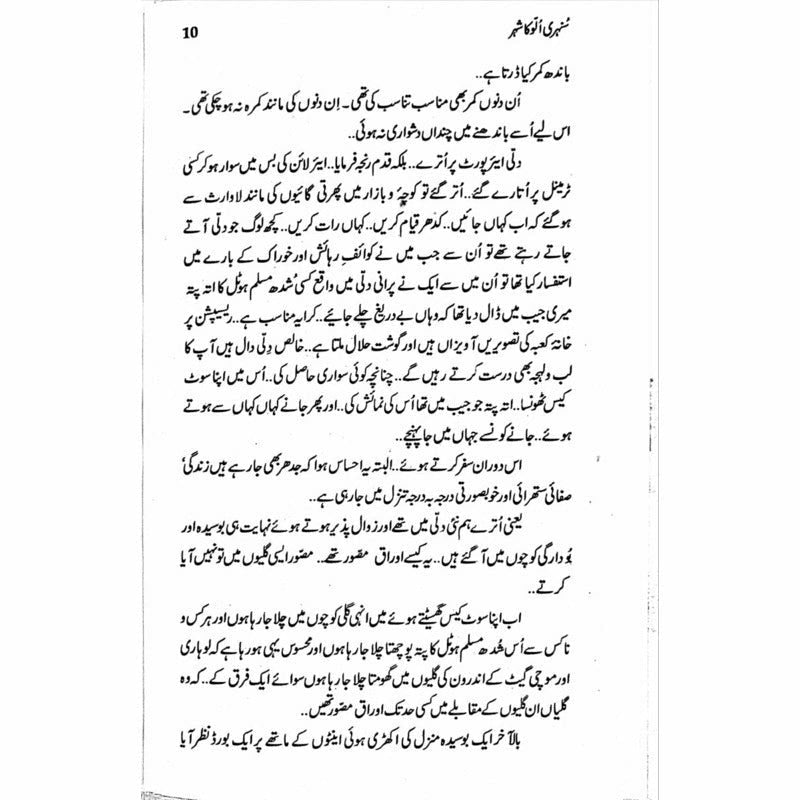 سُنہری اُلّو کا شہر 10
باندھ کمر کیا ڈرتا ہے..
اُن دنوں کمر بھی مناسب تناسب کی تھی۔ اِن دنوں کی مانند کمرہ نہ ہو چکی تھی۔
اس لیے اُسے باندھنے میں چنداں دشواری نہ ہوئی..
دلّی ایئرپورٹ پر اُترے.. بلکہ قدم رنجہ فرمایا.. ایئر لائن کی بس میں سوار ہو کر کسی
ٹرمینل پر اُتارے گئے.. اُتر گئے تو کوچۂ و بازار میں پھرتی گائیوں کی مانند لاوارث سے
ہو گئے کہ اب کہاں جائیں.. کدھر قیام کریں.. کہاں رات کریں.. کچھ لوگ جو دلّی آتے
جاتے رہتے تھے تو اُن سے جب میں نے کوائفِ رہائش اور خوراک کے بارے میں
استفسار کیا تھا تو اُن میں سے ایک نے پرانی دلّی میں واقع کسی شُدھ مسلم ہوٹل کا اتہ پتہ
میری جیب میں ڈال دیا تھا کہ وہاں بے دریغ چلے جائیے.. کرایہ مناسب ہے.. ریسیپشن پر
خانہ کعبہ کی تصویریں آویزاں ہیں اور گوشت حلال ملتا ہے.. خالص دِلّی وال ہیں آپ کا
لب و لہجہ بھی درست کرتے رہیں گے.. چنانچہ کوئی سواری حاصل کی.. اُس میں اپنا سوٹ
کیس ٹھونسا.. اتہ پتہ جو جیب میں تھا اُس کی نمائش کی.. اور پھر جانے کہاں کہاں سے ہوتے
ہوئے.. جانے کونسے جہاں میں جا پہنچے..
اس دوران سفر کرتے ہوئے.. البتہ یہ احساس ہوا کہ جدھر بھی جا رہے ہیں زندگی
صفائی ستھرائی اور خوبصورتی درجہ بہ درجہ تنزل میں جا رہی ہے..
یعنی اُترے ہم نئی دلّی میں تھے اور زوال پذیر ہوتے ہوئے نہایت ہی بوسیدہ اور
بُو دار گلی کوچوں میں آ گئے ہیں.. یہ کیسے اوراق مصّور تھے.. مصّور ایسی گلیوں میں تو نہیں آیا
کرتے..
اب اپنا سوٹ کیس گھسیٹتے ہوئے میں انہی گلی کوچوں میں چلا جا رہا ہوں اور ہر کس و
ناکس سے اُس شُدھ مسلم ہوٹل کا پتہ پوچھتا چلا جا رہا ہوں اور محسوس یہی ہو رہا ہے کہ لوہاری
اور موچی گیٹ کے اندرون کی گلیوں میں گھومتا چلا جا رہا ہوں سوائے ایک فرق کے.. کہ وہ
گلیاں ان گلیوں کے مقابلے میں کسی حد تک اوراق مصّور تھیں..
بالآخر ایک بوسیدہ منزل کی اکھڑی ہوئی اینٹوں کے ماتھے پر ایک بورڈ نظر آیا